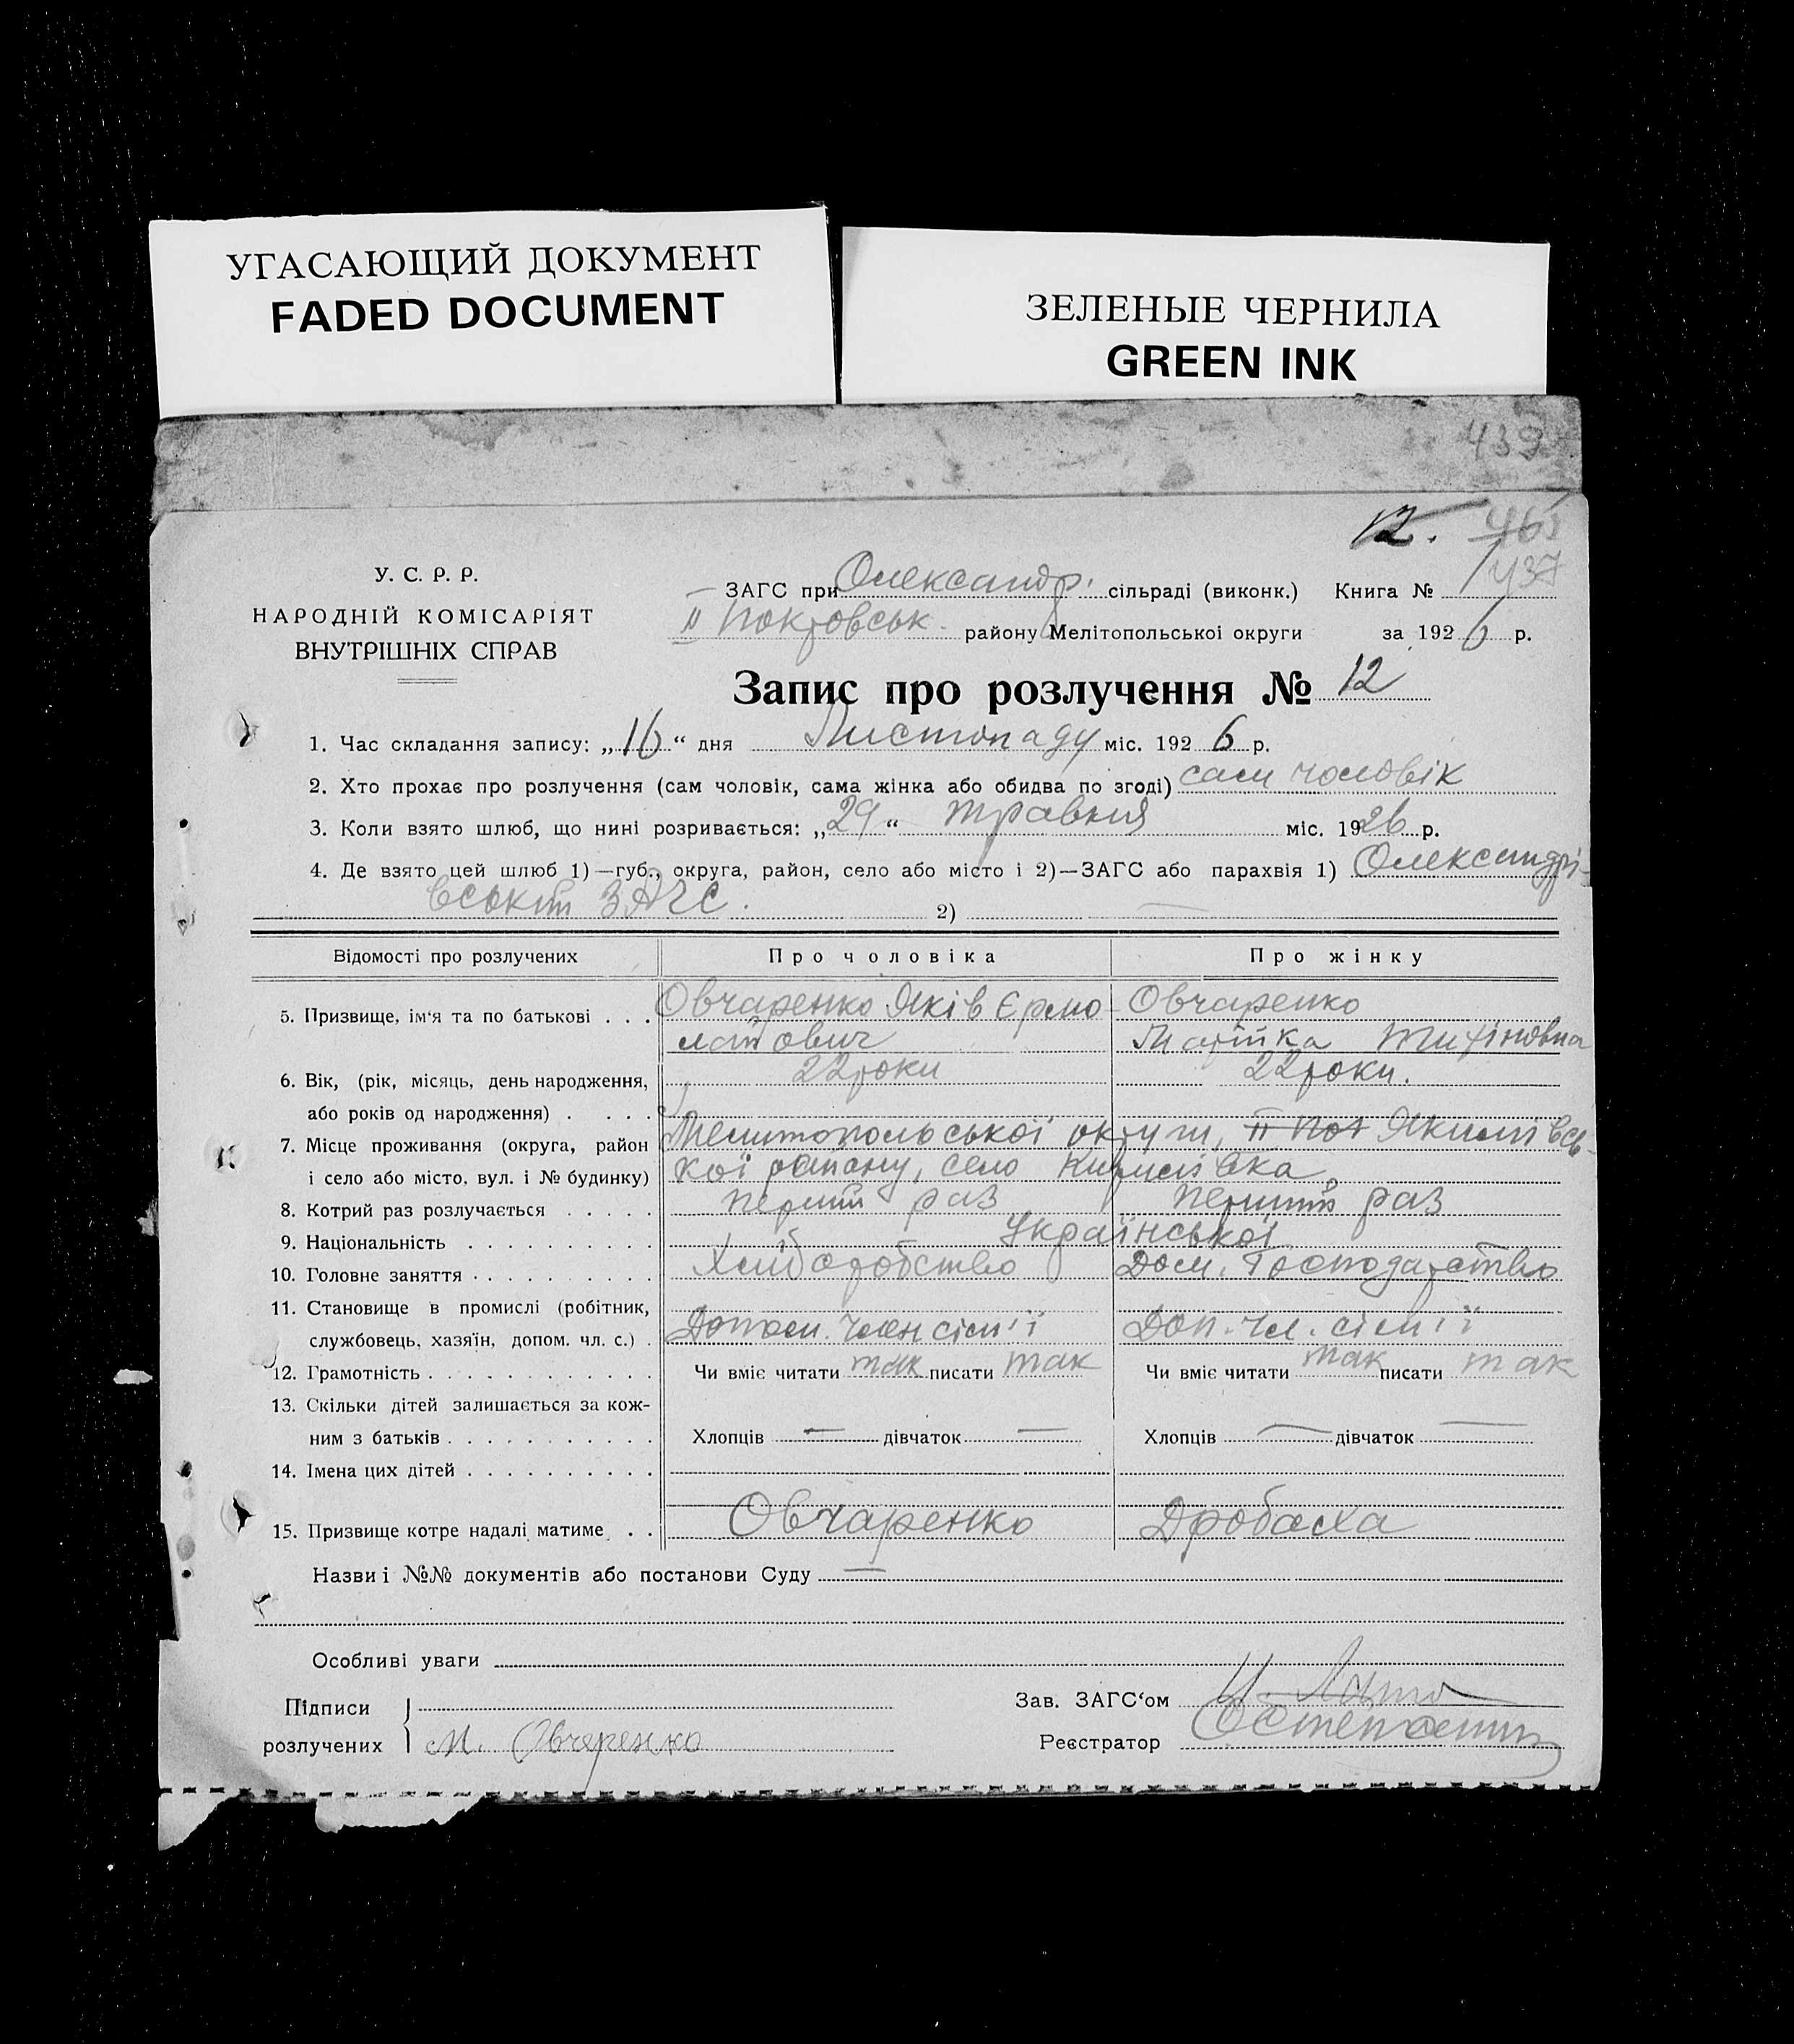 УГАСАЮЩИЙ ДОКУМЕНТ
FADED DOCUMENT
ЗЕЛЕНЫЕ ЧЕРНИЛА
GREEN INK
439
12.
437
У. С. Р. Р.
НАРОДНІЙ КОМІСАРІЯТ
ВНУТРІШНІХ СПРАВ
ЗАГС при Олександр. сільраді (виконк.) Книга №
ІІ Покровськ. району Мелітопольської округи за 1926 р.
Запис про розлучення № 12
1. Час складання запису: „16“ дня Листопаду міс. 1926 р.
2. Хто прохає про розлучення (сам чоловік, сама жінка або обидва по згоді) сам чоловік
3. Коли взято шлюб, що нині розривається: „29“ травня міс. 1926 р.
4. Де взято цей шлюб 1)—губ., округа, район, село або місто і 2)—ЗАГС або парахвія 1) Олександрі-
вський ЗАГС. 2) —
Відомості про розлучених Про чоловіка Про жінку
5. Призвище, ім'я та по батькові . . . Овчаренко Яків Єрмо- Овчаренко
лайович Марійка Тихіновна
6. Вік, (рік, місяць, день народження, 22 роки 22 роки.
або років од народження) . . . .
7. Місце проживання (округа, район Мелитопольської округи, ІІ Пок Якимівсь-
і село або місто, вул. і № будинку) кої району, село Кирилівка
8. Котрий раз розлучається . . . . . перший раз перший раз
9. Національність . . . . . . . . . . Української
10. Головне заняття . . . . . . . . . . Хліборобство Дом. Господарство
11. Становище в промислі (робітник,
службовець, хазяїн, допом. чл. с.) . Допом. член сім'ї Доп. чл. сім'ї
12. Грамотність . . . . . . . . . . . . Чи вміє читати так писати так Чи вміє читати так писати так
13. Скільки дітей залишається за кож-
ним з батьків . . . . . . . . . . . Хлопців — дівчаток — Хлопців — дівчаток —
14. Імена цих дітей . . . . . . . . . .
15. Призвище котре надалі матиме . . Овчаренко Дробаха
Назви і №№ документів або постанови Суду —
Особливі уваги
Підписи Зав. ЗАГС'ом
розлучених М. Овчеренко Реєстратор